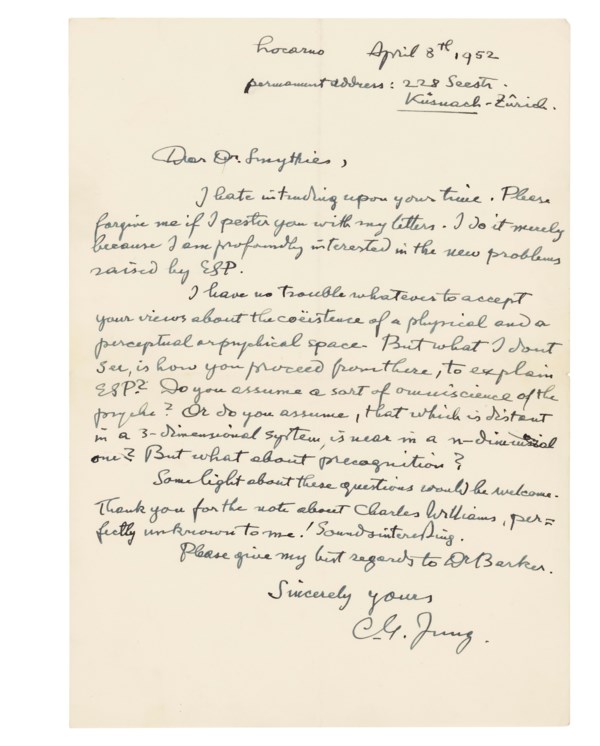 Locarno April 8th, 1952
permanent address: 228 Seestr.
Küsnach-Zürich.
Dear Dr. Smythies,
I hate intruding upon your time. Please
forgive me if I pester you with my letters. I do it merely
because I am profoundly interested in the new problems
raised by ESP.
I have no trouble whatever to accept
your views about the coëistence of a physical and a
perceptual or psychical space. But what I dont
see, is how you proceed from there, to explain
ESP? Do you assume a sort of omniscience of the
psyche? Or do you assume, that which is distant
in a 3-dimensional system, is near in a n-dimensional
one? But what about precognition?
Some light about these questions would be welcome.
Thank you for the note about Charles Williams, per=
fectly unknown to me! Sounds interesting.
Please give my best regards to Dr Barker.
Sincerely yours
C. G. Jung.